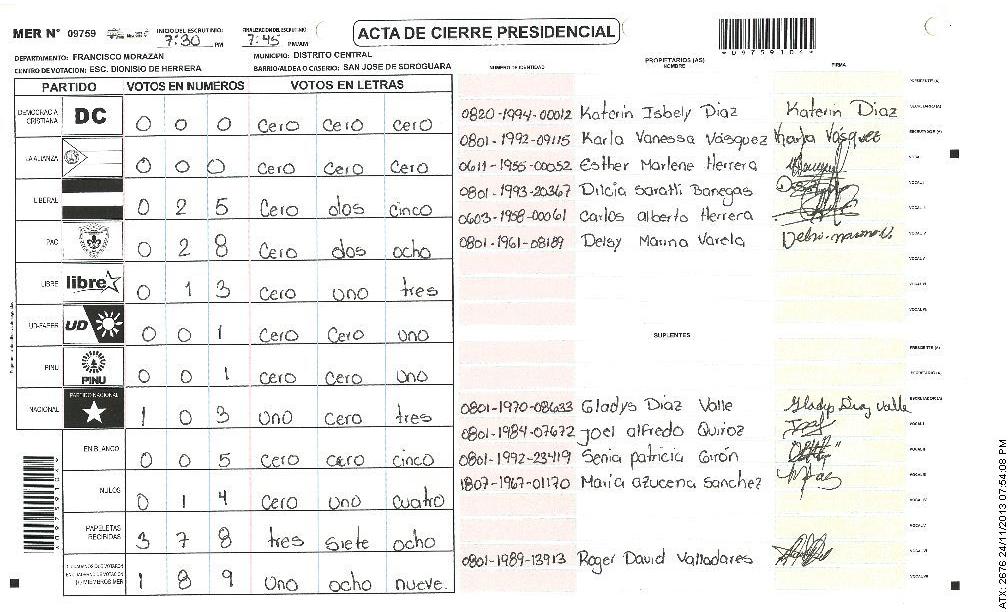 MER N° 09759 INICIO DEL ESCRUTINIO: 7:30 PM FINALIZACION DEL ESCRUTINIO: 7:45 PM/AM ACTA DE CIERRE PRESIDENCIAL
DEPARTAMENTO: FRANCISCO MORAZAN MUNICIPIO: DISTRITO CENTRAL
CENTRO DE VOTACION: ESC. DIONISIO DE HERRERA BARRIO/ALDEA O CASERIO: SAN JOSE DE SOROGUARA
NUMERO DE IDENTIDAD PROPIETARIOS (AS) NOMBRE FIRMA
PARTIDO VOTOS EN NUMEROS VOTOS EN LETRAS
DEMOCRACIA CRISTIANA DC 0 0 0 Cero Cero Cero
LA ALIANZA 0 0 0 Cero Cero Cero
LIBERAL 0 2 5 Cero dos cinco
PAC 0 2 8 Cero dos ocho
LIBRE libre 0 1 3 Cero uno tres
UD-FAPER UD 0 0 1 Cero Cero uno
PINU PINU 0 0 1 cero Cero uno
NACIONAL PARTIDO NACIONAL 1 0 3 uno Cero tres
EN BLANCO 0 0 5 Cero cero cinco
NULOS 0 1 4 Cero uno cuatro
PAPELETAS RECIBIDAS 3 7 8 tres siete ocho
1 8 9 uno ocho nueve.
0820-1994-00012 Katerin Isbely Diaz Katerin Diaz
0801-1992-09115 Karla Vanessa Vásquez Karla Vásquez
0611-1955-00052 Esther Marlene Herrera
0801-1993-20367 Dilcia Saratti Banegas
0603-1958-00061 Carlos alberto Herrera
0801-1961-08189 Delsy Marina Varela
SUPLENTES
0801-1970-08633 Gladys Diaz Valle Gladys Diaz Valle
0801-1984-07672 joel alfredo Quiroz
0801-1992-23419 Senia patricia Girón
1807-1967-01170 Maria azucena Sanchez
0801-1989-13913 Roger David Valladares
ATX: 2676 24/11/2013 07:54:08 PM